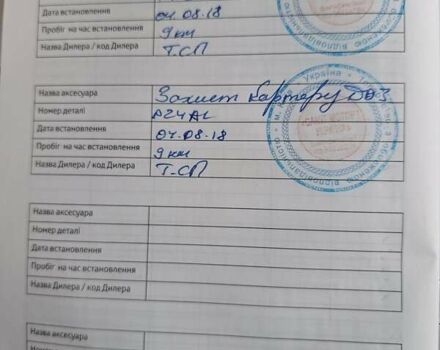 Дата встановлення 04.08.18
Пробіг на час встановлення 9 км
Назва Дилера / код Дилера Т-СП
Назва аксесуара Захист картеру
Номер деталі
Дата встановлення 04.08.18
Пробіг на час встановлення 9 км
Назва Дилера / код Дилера Т-СП
Україна
Назва аксесуара
Номер деталі
Дата встановлення
Пробіг на час встановлення
Назва Дилера / код Дилера
Назва аксесуара